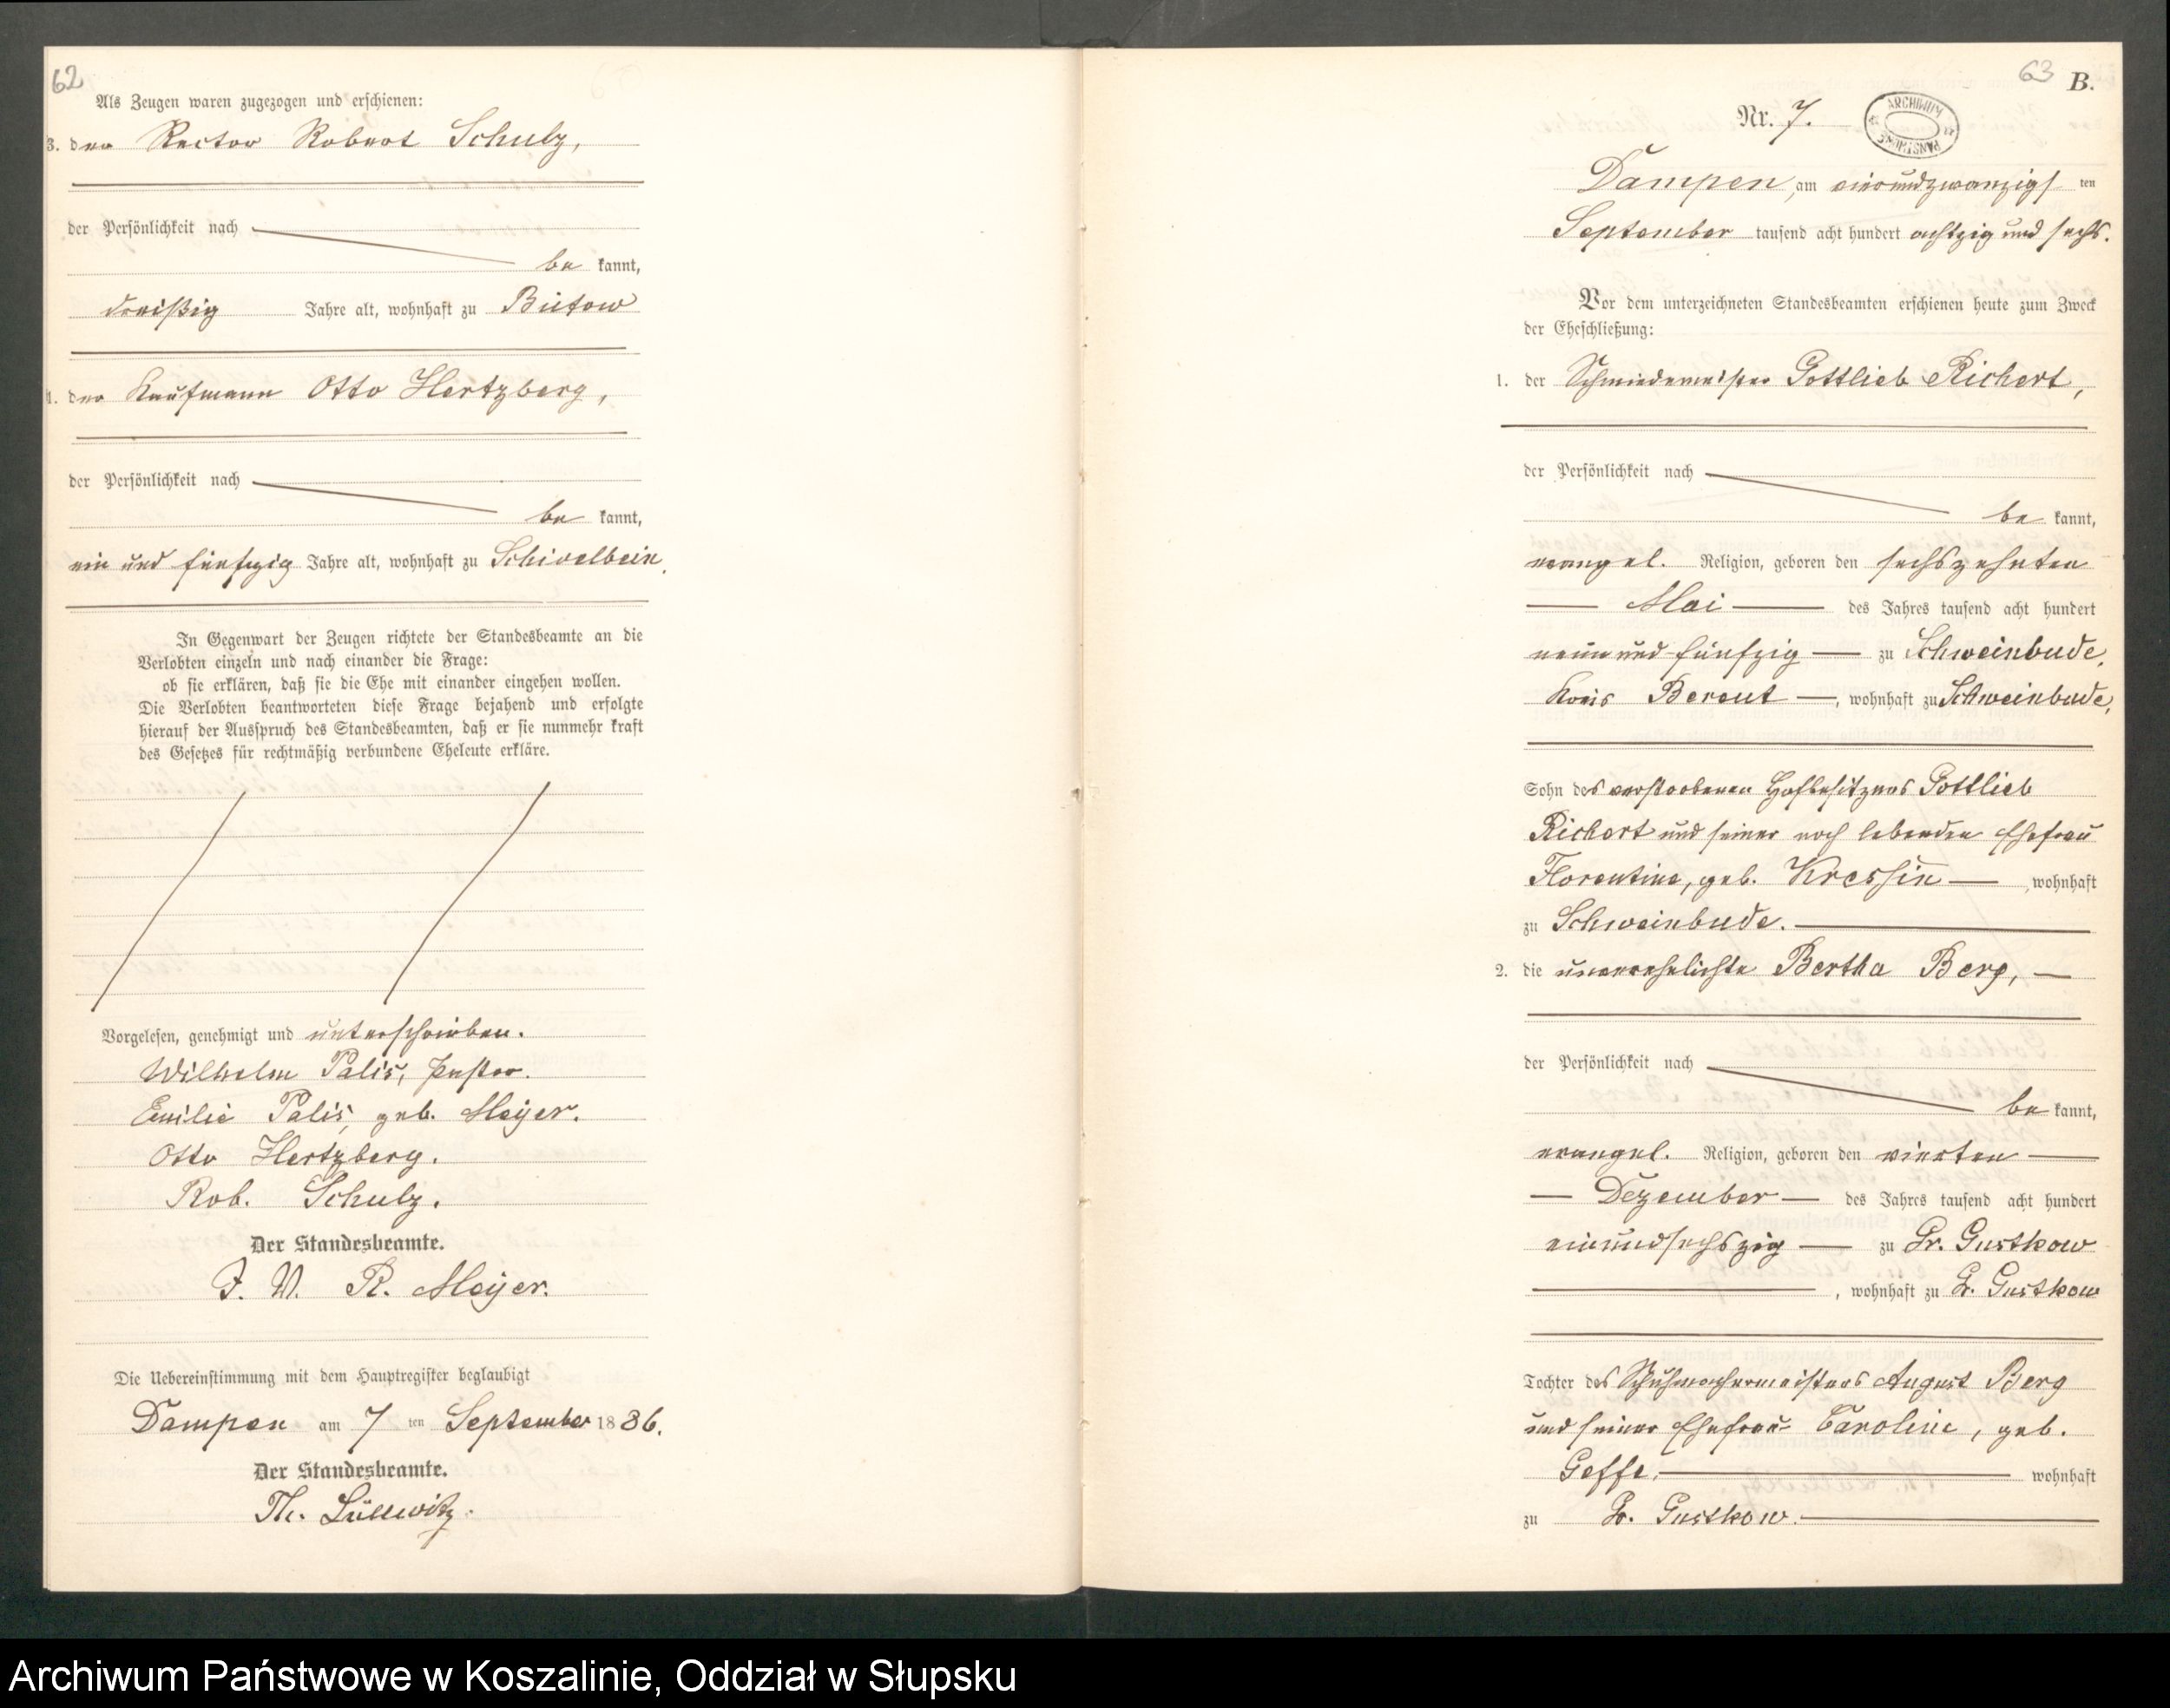 62
Als Zeugen waren zugezogen und erschienen:
3. der Rector Robert Schulz,
der Persönlichkeit nach
be kannt,
dreißig Jahre alt, wohnhaft zu Bütow
4. der Kaufmann Otto Hertzberg,
der Persönlichkeit nach
be kannt,
ein und fünfzig Jahre alt, wohnhaft zu Schivelbein.
In Gegenwart der Zeugen richtete der Standesbeamte an die
Verlobten einzeln und nach einander die Frage:
ob sie erklären, daß sie die Ehe mit einander eingehen wollen.
Die Verlobten beantworteten diese Frage bejahend und erfolgte
hierauf der Ausspruch des Standesbeamten, daß er sie nunmehr kraft
des Gesetzes für rechtmäßig verbundene Eheleute erkläre.
Vorgelesen, genehmigt und unterschrieben.
Wilhelm Palis, Pastor.
Emilie Palis, geb. Meyer.
Otto Hertzberg.
Rob. Schulz.
Der Standesbeamte.
J. W. R. Meyer.
Die Uebereinstimmung mit dem Hauptregister beglaubigt
Dampen am 7 ten September 1886.
Der Standesbeamte.
Th. Lüllwitz.
63 B.
Nr. 7.
ARCHIWUM PAŃSTWOWE
Dampen, am vierundzwanzigs ten
September tausend acht hundert achtzig und sechs.
Vor dem unterzeichneten Standesbeamten erschienen heute zum Zweck
der Eheschließung:
1. der Schmiedemeister Gottlieb Richert,
der Persönlichkeit nach
be kannt,
evangel. Religion, geboren den sechszehnten
Mai des Jahres tausend acht hundert
neun und fünfzig zu Schweinbude,
Kreis Berent, wohnhaft zu Schweinbude,
Sohn des verstorbenen Hofbesitzers Gottlieb
Richert und seiner noch lebenden Ehefrau
Florentine, geb. Kressin wohnhaft
zu Schweinbude.
2. die unverehelichte Bertha Berg,
der Persönlichkeit nach
be kannt,
evangel. Religion, geboren den vierten
Dezember des Jahres tausend acht hundert
einundsechszig zu Gr. Gustkow
, wohnhaft zu Gr. Gustkow
Tochter des Schuhmachermeisters August Berg
und seiner Ehefrau Caroline, geb.
Geffe. wohnhaft
zu Gr. Gustkow.
Archiwum Państwowe w Koszalinie, Oddział w Słupsku